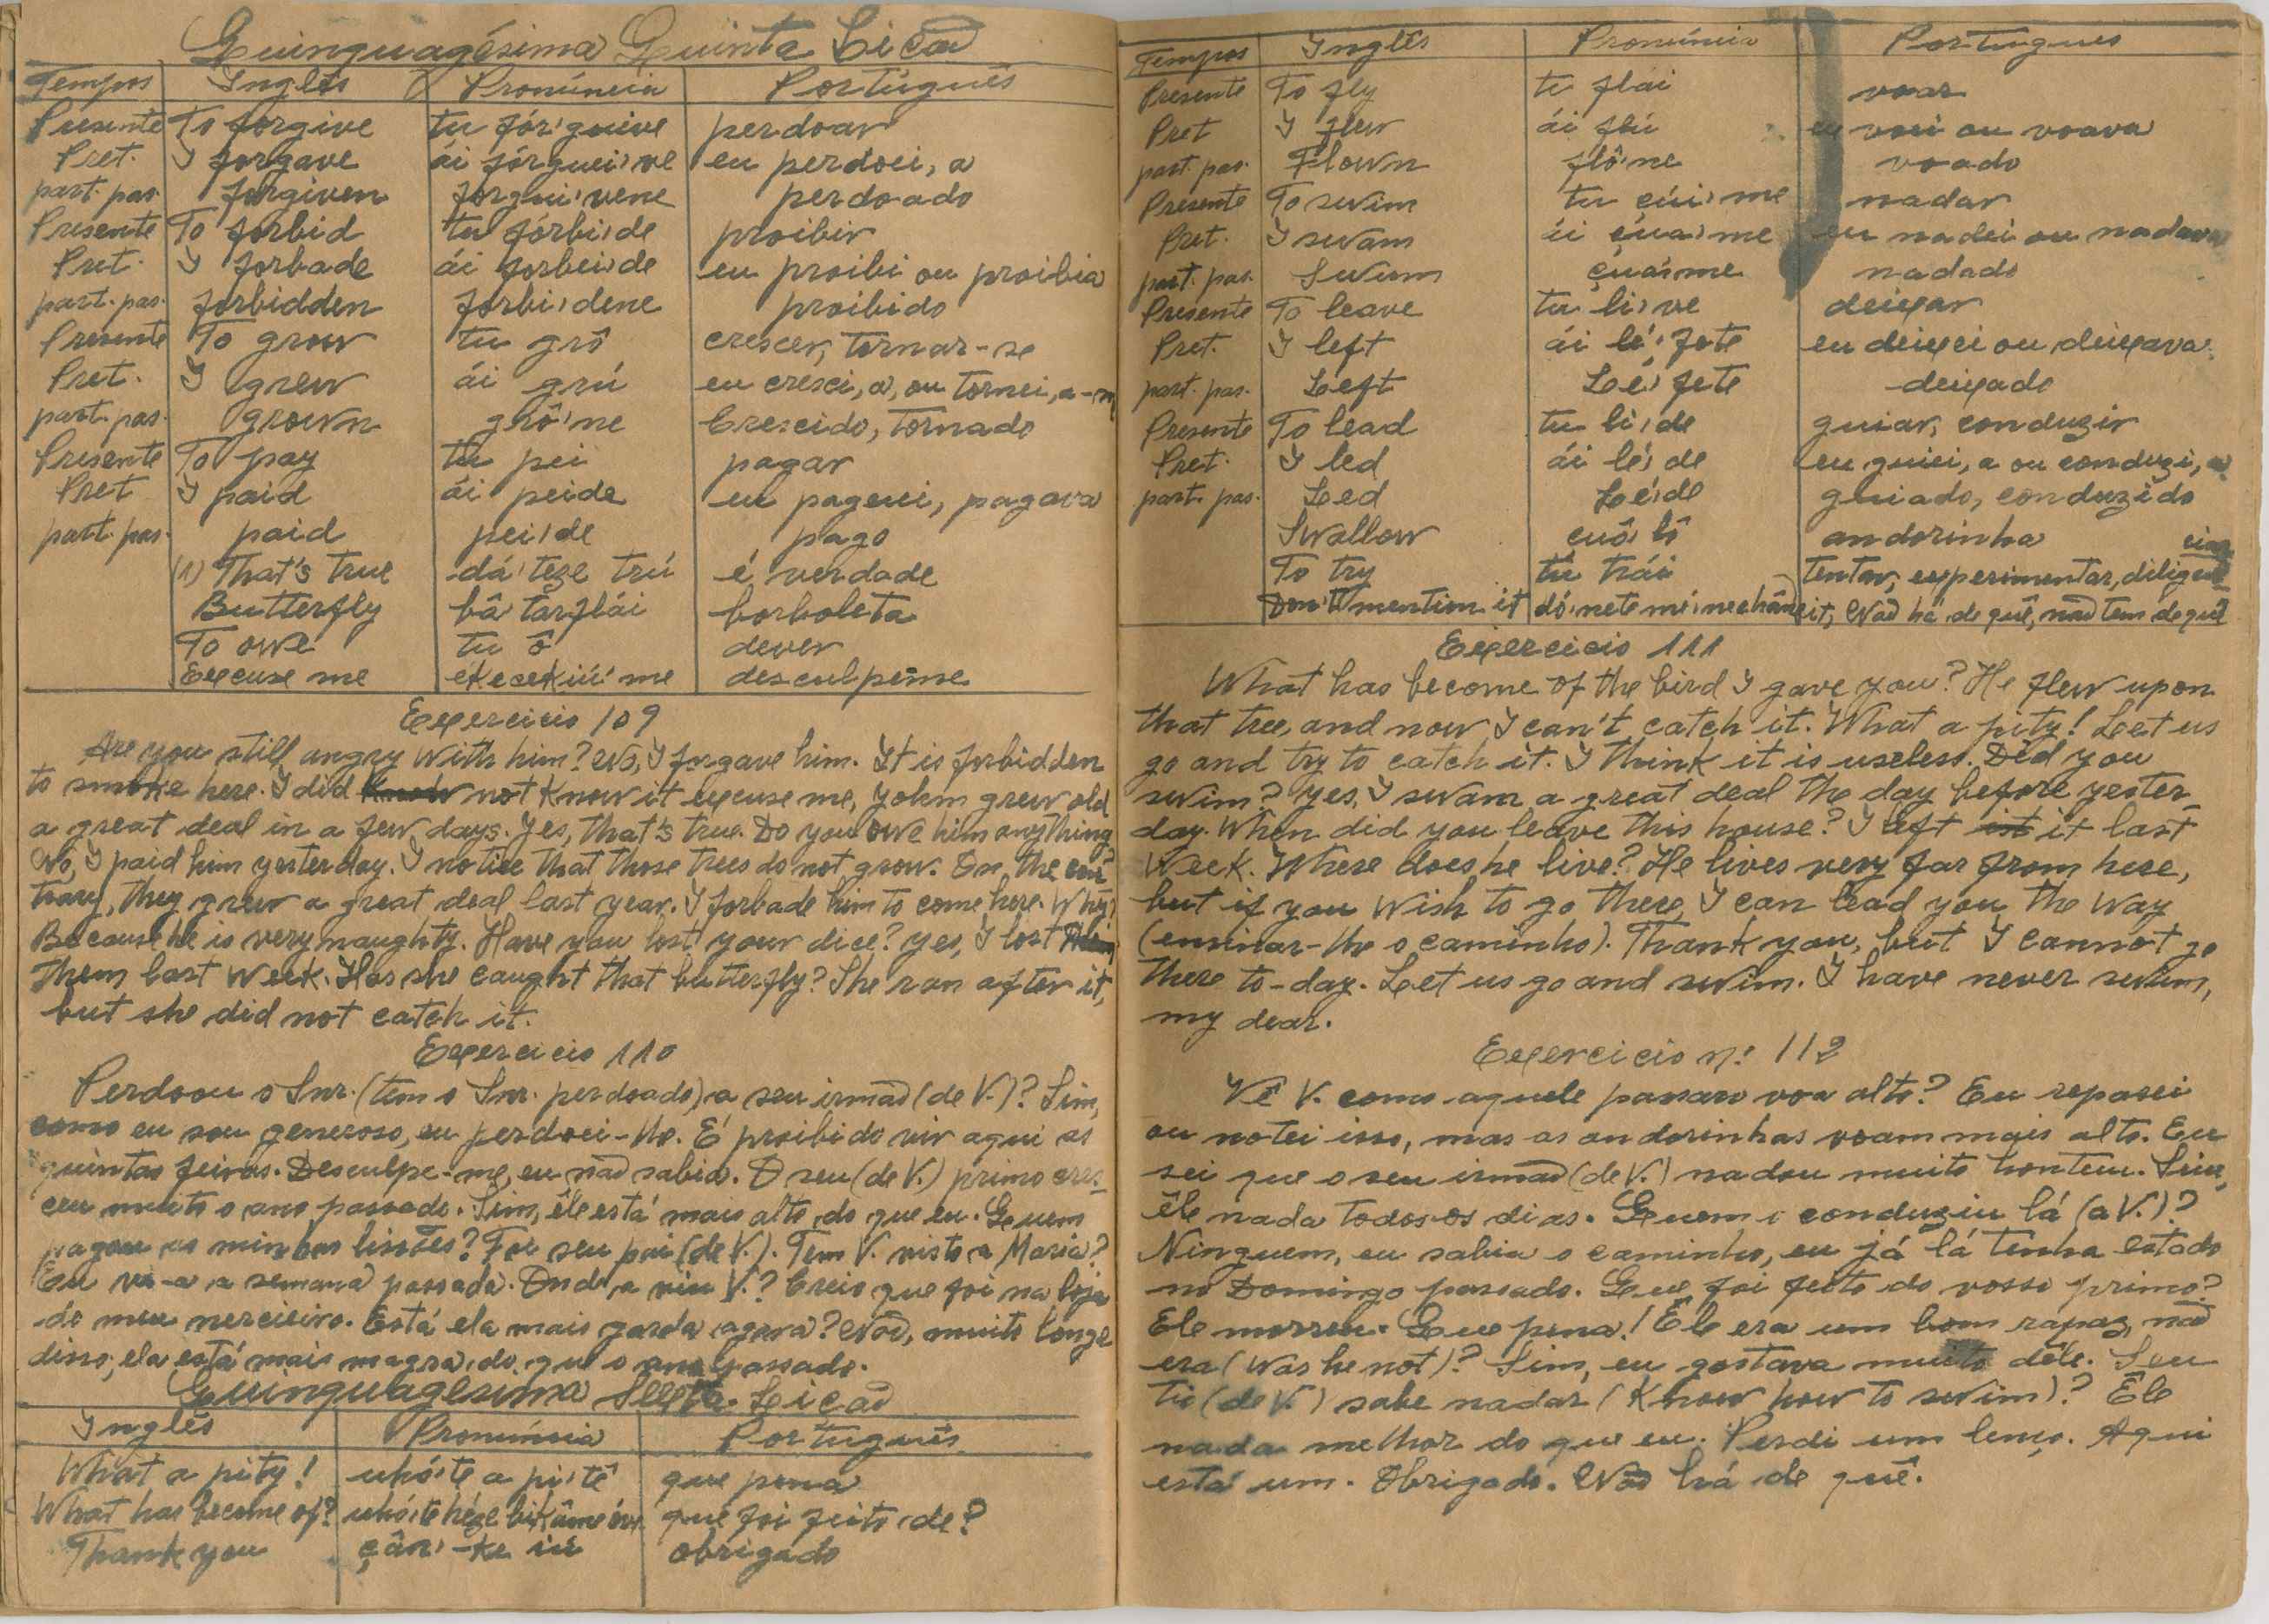 Quinquagésima Quinta Lição
Tempos Inglês Pronúncia Português
Presente To forgive tu fór'guive perdoar
Pret. I forgave ái fórguei've eu perdoei, a
part. pas. forgiven forgui'vene perdoado
Presente To forbid tu fórbi'de proibir
Pret. I forbade ái forbei'de eu proibi ou proibia
part. pas. forbidden forbi'dene proibido
Presente To grow tu grô crescer, tornar-se
Pret. I grew ái grú eu cresci, a, ou tornei, a-m
part. pas. grown grô'ne Crescido, tornado
Presente To pay tu pei pagar
Pret I paid ái peide eu paguei, pagava
part. pas. paid pei'de pago
(1) That's true dá'teze trú é verdade
Butterfly bâ'tarflái borboleta
To owe tu ô dever
Excuse me ékcekiú'me desculpeme
Exercicio 109
Are you still angry with him? No, I forgave him. It is forbidden
to smoke here. I did know not know it excuse me, Yohm grew old
a great deal in a few days. Yes, that's true. Do you owe him anything
No, I paid him yesterday. I notice that those trees do not grow. On the con-
trary, they grew a great deal last year. I forbade him to come here. Why?
Because he is very naughty. Have you lost your dice? yes, I lost
them last week. Has she caught that butterfly? She ran after it,
but she did not catch it.
Exercicio 110
Perdoou o Snr. (tem o Snr. perdoado) a seu irmão (de V.)? Sim,
como eu sou generoso, eu perdoei-lho. É proibido vir aqui as
quintas feiras. Desculpe-me, eu não sabia. O seu (de V.) primo cres-
ceu muito o ano passado. Sim, êle está mais alto do que eu. Quem
pagou as minhas lissões? Foi seu pai (de V.). Tem V. visto a Maria?
Eu vi-a a semana passada. Onde a viu V.? Creio que foi na loja
do meu merceeiro. Está ela mais gorda agora? Não, muito longe
disso, ela está mais magra do que o ano passado.
Quinquagésima Sexta Lição
Inglês Pronúncia Português
What a pity! uhó'te a pi'tê que pena
What has become of? uhó'te héze bikâme óve que foi feito de?
Thank you çân'-ke iú obrigado
Tempos Inglês Pronúncia Portugues
Presente To fly tu flai voar
Pret I flew ái flú eu voei ou voava
part. pas. Flown flô'ne voado
Presente To swim tu çúi'me nadar
Pret. I swam ái çúa'me eu nadei ou nadava
part. pas. Swum çuá'me nadado
Presente To leave tu li've deixar
Pret. I left ái lé'fete eu deixei ou deixava
part. pas. Left Lé'fete deixado
Presente To lead tu li'de guiar, conduzir
Pret. I led ái lé'de eu guiei, a ou conduzi, a
part. pas. Led Lé'de guiado, conduzido
Swallow cuô'lô andorinha
To try tu trái tentar, experimentar, diligenciar
Don't mention it dó'nete mé'nechâne it, Não há de quê, não tem de quê
Exercicio 111
What has become of the bird I gave you? He flew upon
that tree, and now I can't catch it. What a pity! Let us
go and try to catch it. I think it is useless. Did you
swim? yes, I swam a great deal the day before yester-
day. When did you leave this house? I left ist it last
Week. Where does he live? He lives very far from here,
but if you wish to go there, I can lead you the way
(ensinar-lhe o caminho). Thank you, but I cannot go
there to-day. Let us go and swim. I have never swum,
my dear.
Exercicio nº. 112
Vê V. como aquele passaro voa alto? Eu reparei
ou notei isso, mas as andorinhas voam mais alto. Eu
sei que o seu irmão (de V.) nadou muito hontem. Sim,
êle nada todos os dias. Quem o conduziu lá (a V.)?
Ninguem, eu sabia o caminho, eu já lá tenha estado
no Domingo passado. Que foi feito do vosso primo?
Ele morreu. Que pena! Êle era um bom rapaz, não
era (was he not)? Sim, eu gostava muito dêle. Seu
tio (de V.) sabe nadar (Know how to swim)? Êle
nada melhor do que eu. Perdi um lenço. Aqui
está um. Obrigado. Não há de quê.